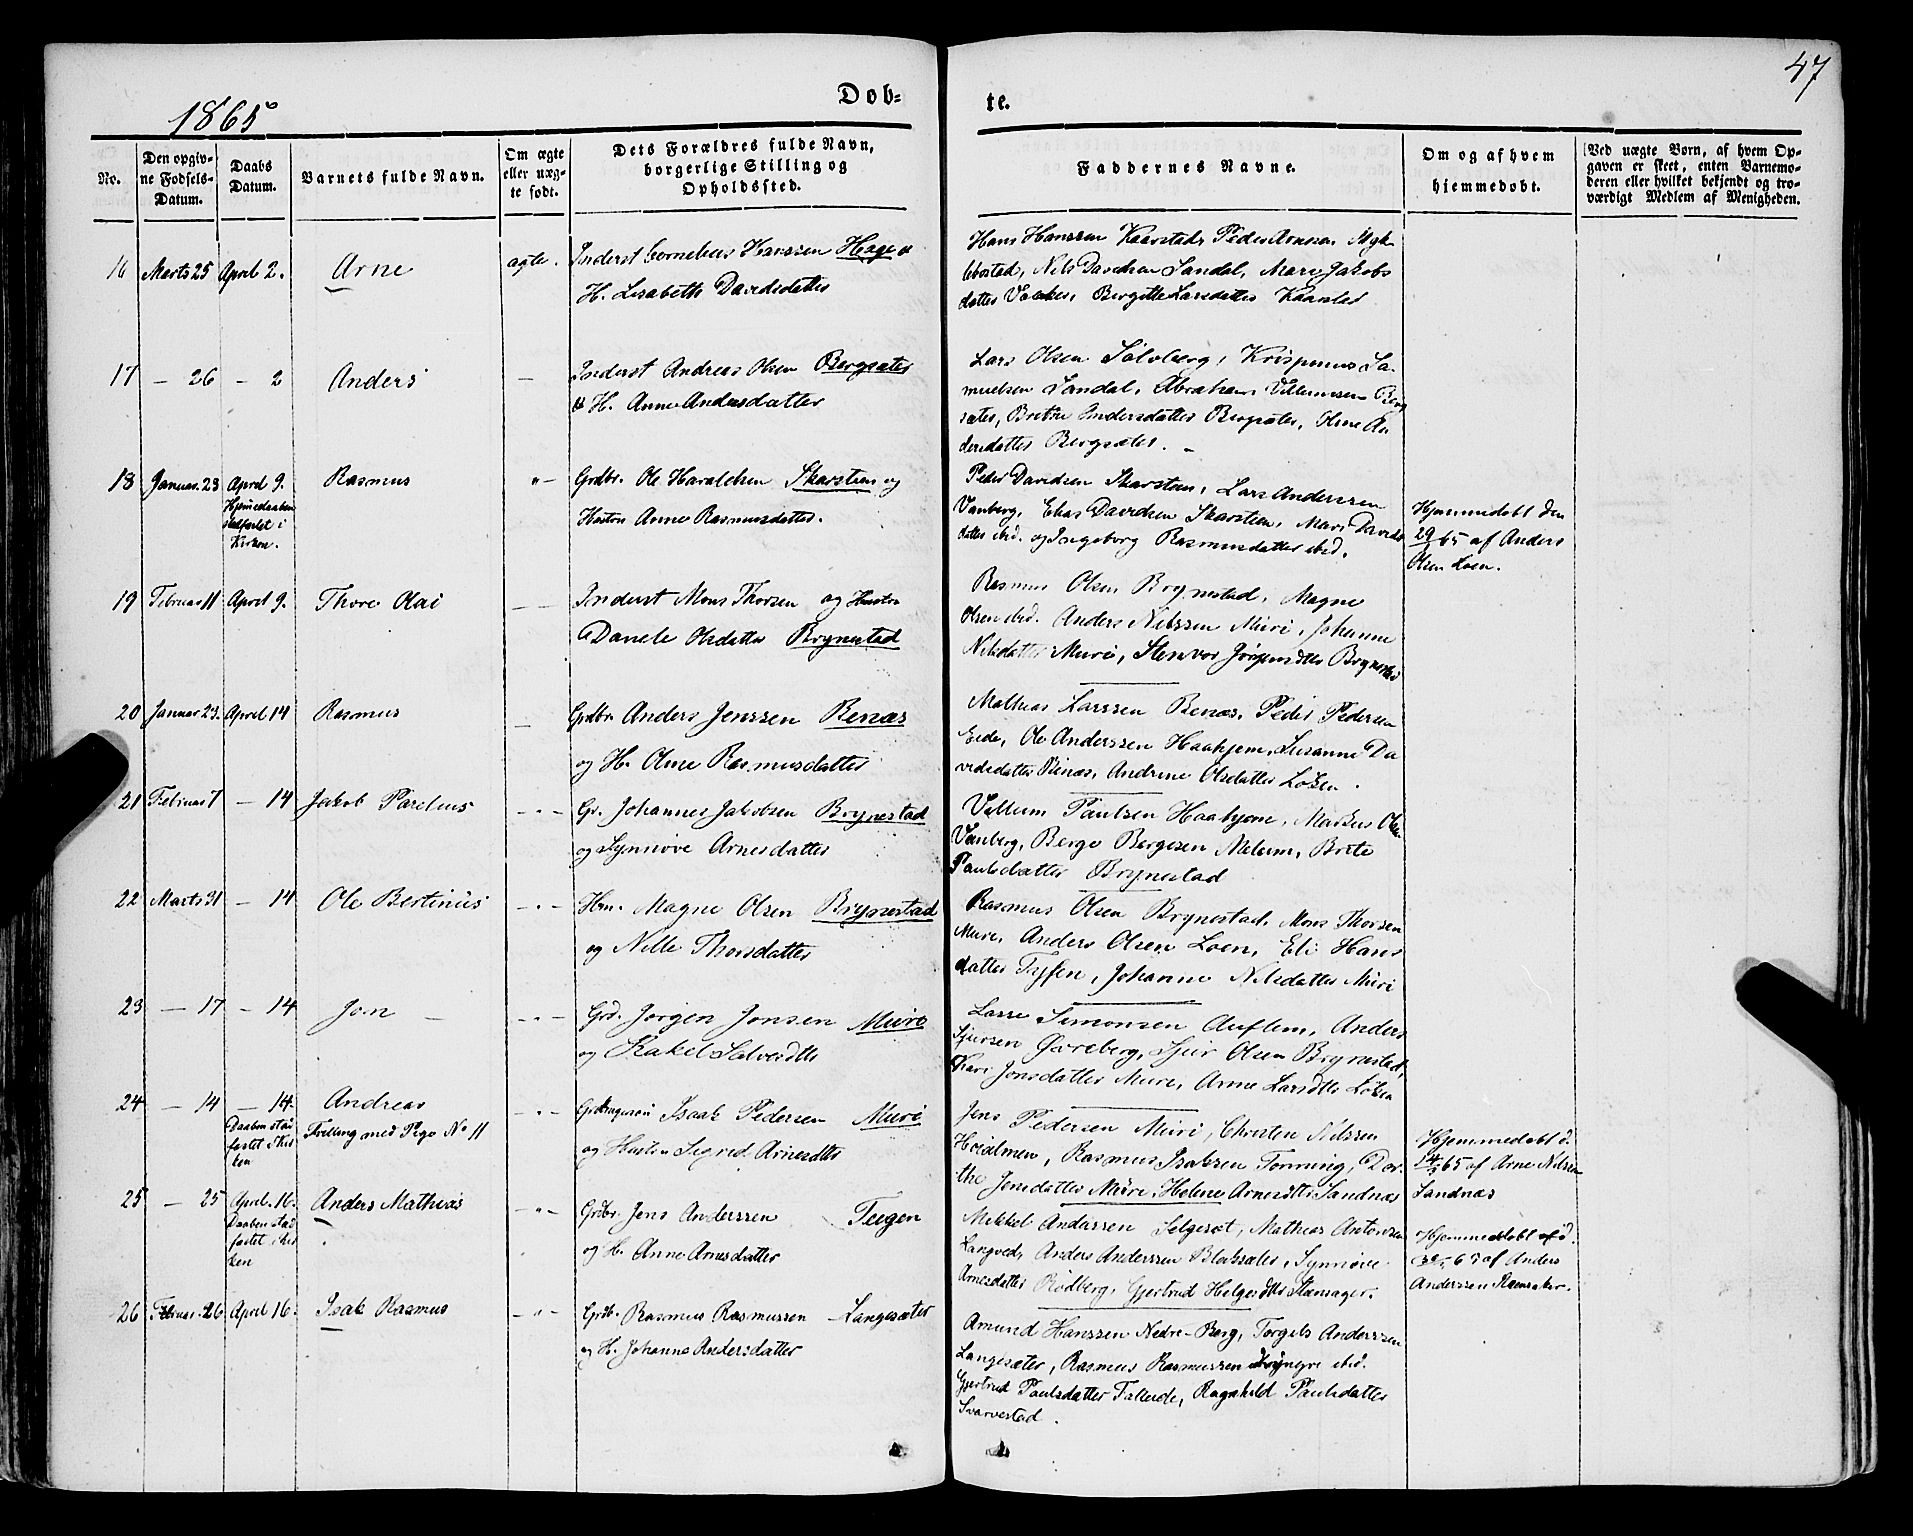 47
1865
Døb-
te.
No.
Den opgiv-
ne Fødsels-
Datum.
Daabs
Datum.
Barnets fulde Navn.
Om ægte
eller uæg-
te født.
Dets Forældres fulde Navn,
borgerlige Stilling og
Opholdssted.
Faddernes Navne.
Om og af hvem
hjemmedøbt.
Ved uægte Børn, af hvem Op-
gaven er skeet, enten Barnemo-
deren eller hvilket bekjendt og tro-
værdigt Medlem af Menigheden.
16 Marts 25 April 2. Arne ægte.
Inderst Cornelius Hanssen Hage og
H. Lisabeth Davidsdatter
Hans Hanssen Kaarstad, Peder Arnesen Myk-
lebostad, Nils Davidsen Sandal, Mari Jakobs
datter, Bergitte Larsdatter Kaarstad
17 - 26 - 2 Anders -
Inderst Andreas Olsen Bergsæter
& H. Anne Andersdatter
Lars Olsen Solvberg, Krispinus Sa-
muelsen Sandal, Abraham Villumsen Berg
sæter, Brethe Andersdatter Bergsæter, Anne An
dersdatter Bergsæter. -
18 Januar 28 April 9. Rasmus " -
Hjemmedaaben
stadfæstet i
Kirken.
Grdbr. Ole Haraldsen Skarsteen og
Hustru Anne Rasmusdatter.
Peder Davidsen Skarsteen, Lars Anderssen
Vanberg, Elias Davidsen Skarsteen, Mari Davids
datter ibid. og Ingeborg Rasmusdatter ibid.
Hjemmedøbt den
29/1 65 af Anders
Olsen Loen.
19 Februar 11 April 9. Thore Olai - -
Inderst Mons Thorsen og Hustru
Danele Olsdatter Brynestad
Rasmus Olsen Brynestad, Magne
Olsen ibid. Anders Nilssen Muri, Johanne
Nilsdatter Muri, Stenvor Jørgensdtter Brynestad
20 Januar 23. April 14 Rasmus -
Grdbr. Anders Jenssen Renæs
og H. Oline Rasmusdatter
Mathias Larssen Renæs, Peder Pedersen
Eide, Ole Anderssen Haahjem, Susanne Da
vidsdatter Renæs, Andrine Olsdatter Løken.
21 Februar 7 - 14 Jakob Parelius - " -
Gr. Johannes Jakobsen Brynestad
og Synnøve Arnesdatter
Villum Paulsen Haahjem, Markus Olsen
Vanberg, Berge Bergesen Melum, Brite
Paulsdatter Brynestad
22 Marts 31 - 14 Ole Bertinus - " -
Hm. Magne Olsen Brynestad
og Nille Thorsdatter
Rasmus Olsen Brynestad, Mons Thorsen
Muri, Anders Olsen Loen, Eli Hans
datter, Johanne Nilsdatter Muri
23 - 17 - 14 Jon - - " -
Grd. Jørgen Jonsen Muri
og Rakel Salvesdtr
Lasse Simonsen Auflem, Anders
Sjursen, Sjur Olsen Brynestad,
Kari Jonsdatter Muri, Anne Larsdtr Løken
24 - 14 - 14. Andreas - " -
Daaben stad
fæstet i Kir
ken
Tvilling med Pige No 11
Isaak Pedersen Muri
og Hustru Sigrid Arnesdtr
Jens Pedersen Muri, Christen Nilssen
Hvidmen, Rasmus Isaksen Tonning, Dor-
the Jensdatter Muri, Helene Arnesdtr Sandnæs
Hjemmedøbt d.
14/3 65 af Arne Nilsen
Sandnæs
25 - 25 April 16. Anders Mathias - " -
Daaben stad
fæstet i kir
ken
Grdbr. Jens Anderssen Teigen
og H. Anne Arnesdatter
Mikkel Anderssen Selgeset, Mathias Antonsen
Langved, Anders Anderssen Bleksæter, Synnøve
Arnesdatter Rødberg, Gjertrud Helgesdtr Stensager.
Hjemmedøbt d.
af Anders
Anderssen.
26 Februar 26 April 16. Isak Rasmus - " -
Grdbr. Rasmus Rasmussen Langesæter
og H. Johanne Andersdatter
Amund Hanssen Nedre-Berg, Torgels Anderssen
Langesæter, Rasmus Rasmussen d. yngre ibid.
Gjertrud Paulsdatter Tallede, Ragnhild Paulsdatter
Svarvestad.